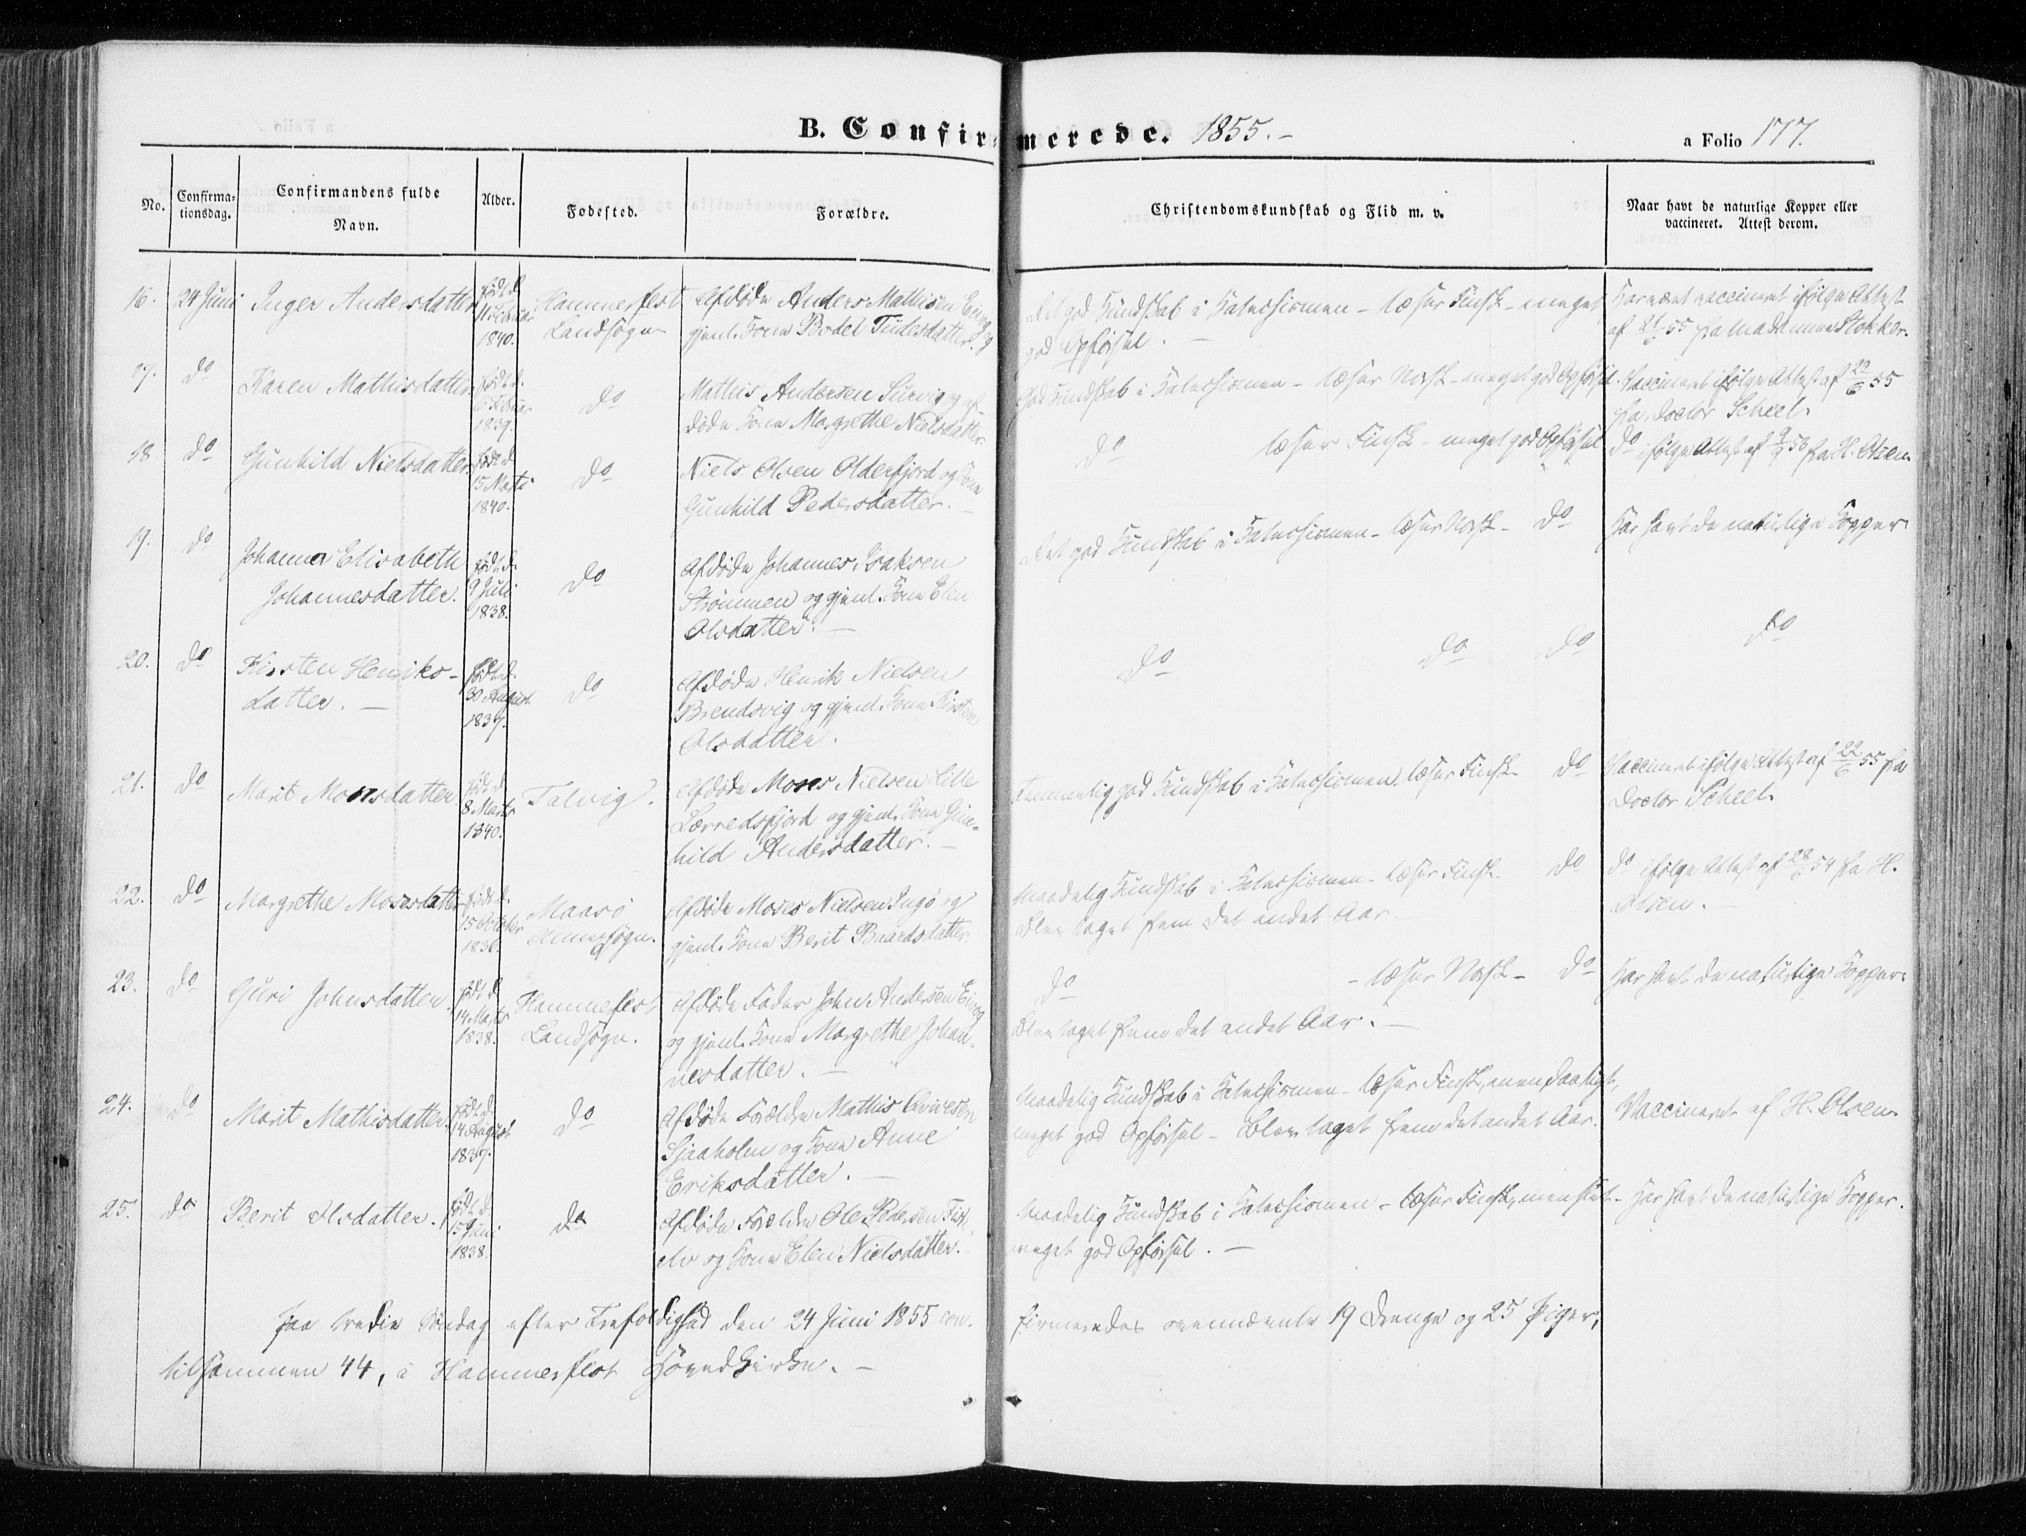 B. Confirmerede. 1855.-
a Folio 177.
No.
Confirmationsdag.
Confirmandens fulde Navn.
Alder.
Fødested.
Forældre.
Christendomskundskab og Flid m. v.
Naar havt de naturlige Kopper eller vaccineret. Attest derom.
16. 24 Juni Inger Andersdatter født d. 1840. Hammerfest Landsogn Afdøde Anders Mathisen og gjenl. Kone Bodel Tudesdatter. Ret god Kundskab i Katechismen - læser Finsk - meget god Opførsel. - Har været vaccineret ifølge Attest af 21/6 55 fra Madamme Stokker.
17. do Karen Mathisdatter født d. 6 Februar 1839. do Mathis Andersen Survig og afdøde Kone Margrethe Nielsdatter. God Kundskab i Katechismen - læser Norsk - meget god Opførsel. Vaccineret ifølge Attest af 22/6 55 fra Doctor Scheel.
18. do Gunhild Nielsdatter født d. 15 Marts 1840. do Niels Olsen Olderfjord og Kone Gunhild Pedersdatter. - do læser Finsk - meget god Opførsel do ifølge Attest af 53 fra H. Olsen.
19. do Johanna Elisabeth Johannesdatter. født d. 9 Juli 1838. do Afdøde Johannes Isaksen Strømmen og gjenl. Kone Elen Olsdatter. - Ret god Kundskab i Katechismen - læser Norsk - do Har havt de naturlige Kopper.
20. do Kirsten Henriksdatter. - født d. 30 August 1837. do Afdøde Henrik Nielsen Brendsvig og gjenl. Kone Kirsten Olsdatter. - do do do do
21. do Marit Mosesdatter født d. 8 Marts 1840. Talvig. Afdøde Moses Nielsen Lille Lerredsfjord og gjenl. Kone Gunhild Andersdatter. - Temmelig god Kundskab i Katechismen læser Finsk - do Vaccineret ifølge Attest af 22/6 55 fra Doctor Scheel.
22. do Margrethe Mosesdatter født d. 15 October 1836. Maasø Annexsogn. Afdøde Moses Nielsen Ingø og gjenl. Kone Berit Baardsdatter. Maadelig Kundskab i Katechismen - læser Finsk - do Blev taget frem det andet Aar - do ifølge Attest af 28/6 54 fra H. Olsen. -
23. do Guri Johnsdatter. født d. 14 Marts 1838. Hammerfest Landsogn. Afdøde Fader John Andersen og gjenl. Kone Margrethe Johannesdatter. - do - læser Norsk - do Blev taget frem det andet Aar. - Har havt de naturlige Kopper.
24. do Marit Mathisdatter. født d. 14 August 1837. do Afdøde Forældre Mathis Sjaaholm og Kone Anne Eriksdatter. - Maadelig Kundskab i Katechismen - læser Finsk, men daarligt, meget god Opførsel - blev taget frem det andet Aar. Vaccineret af H. Olsen.
25. do Berit Olsdatter. født d. 15 Juni 1838. do Afdøde Forældre Ole Pedersen og Kone Elen Nielsdatter. - Maadelig Kundskab i Katechismen - læser Finsk, men slet - meget god Opførsel. - Har havt de naturlige Kopper.
Paa tredie Søndag efter Trefoldighed den 24 Juni 1855 confirmeredes ovennævnte 19 Drenge og 25 Piger,
tilsammen 44, i Hammerfest Hovedkirke. -